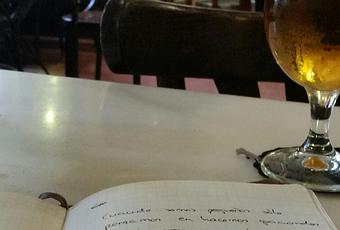 Cuando somos pequeños sólo
pensamos en hacernos grandes